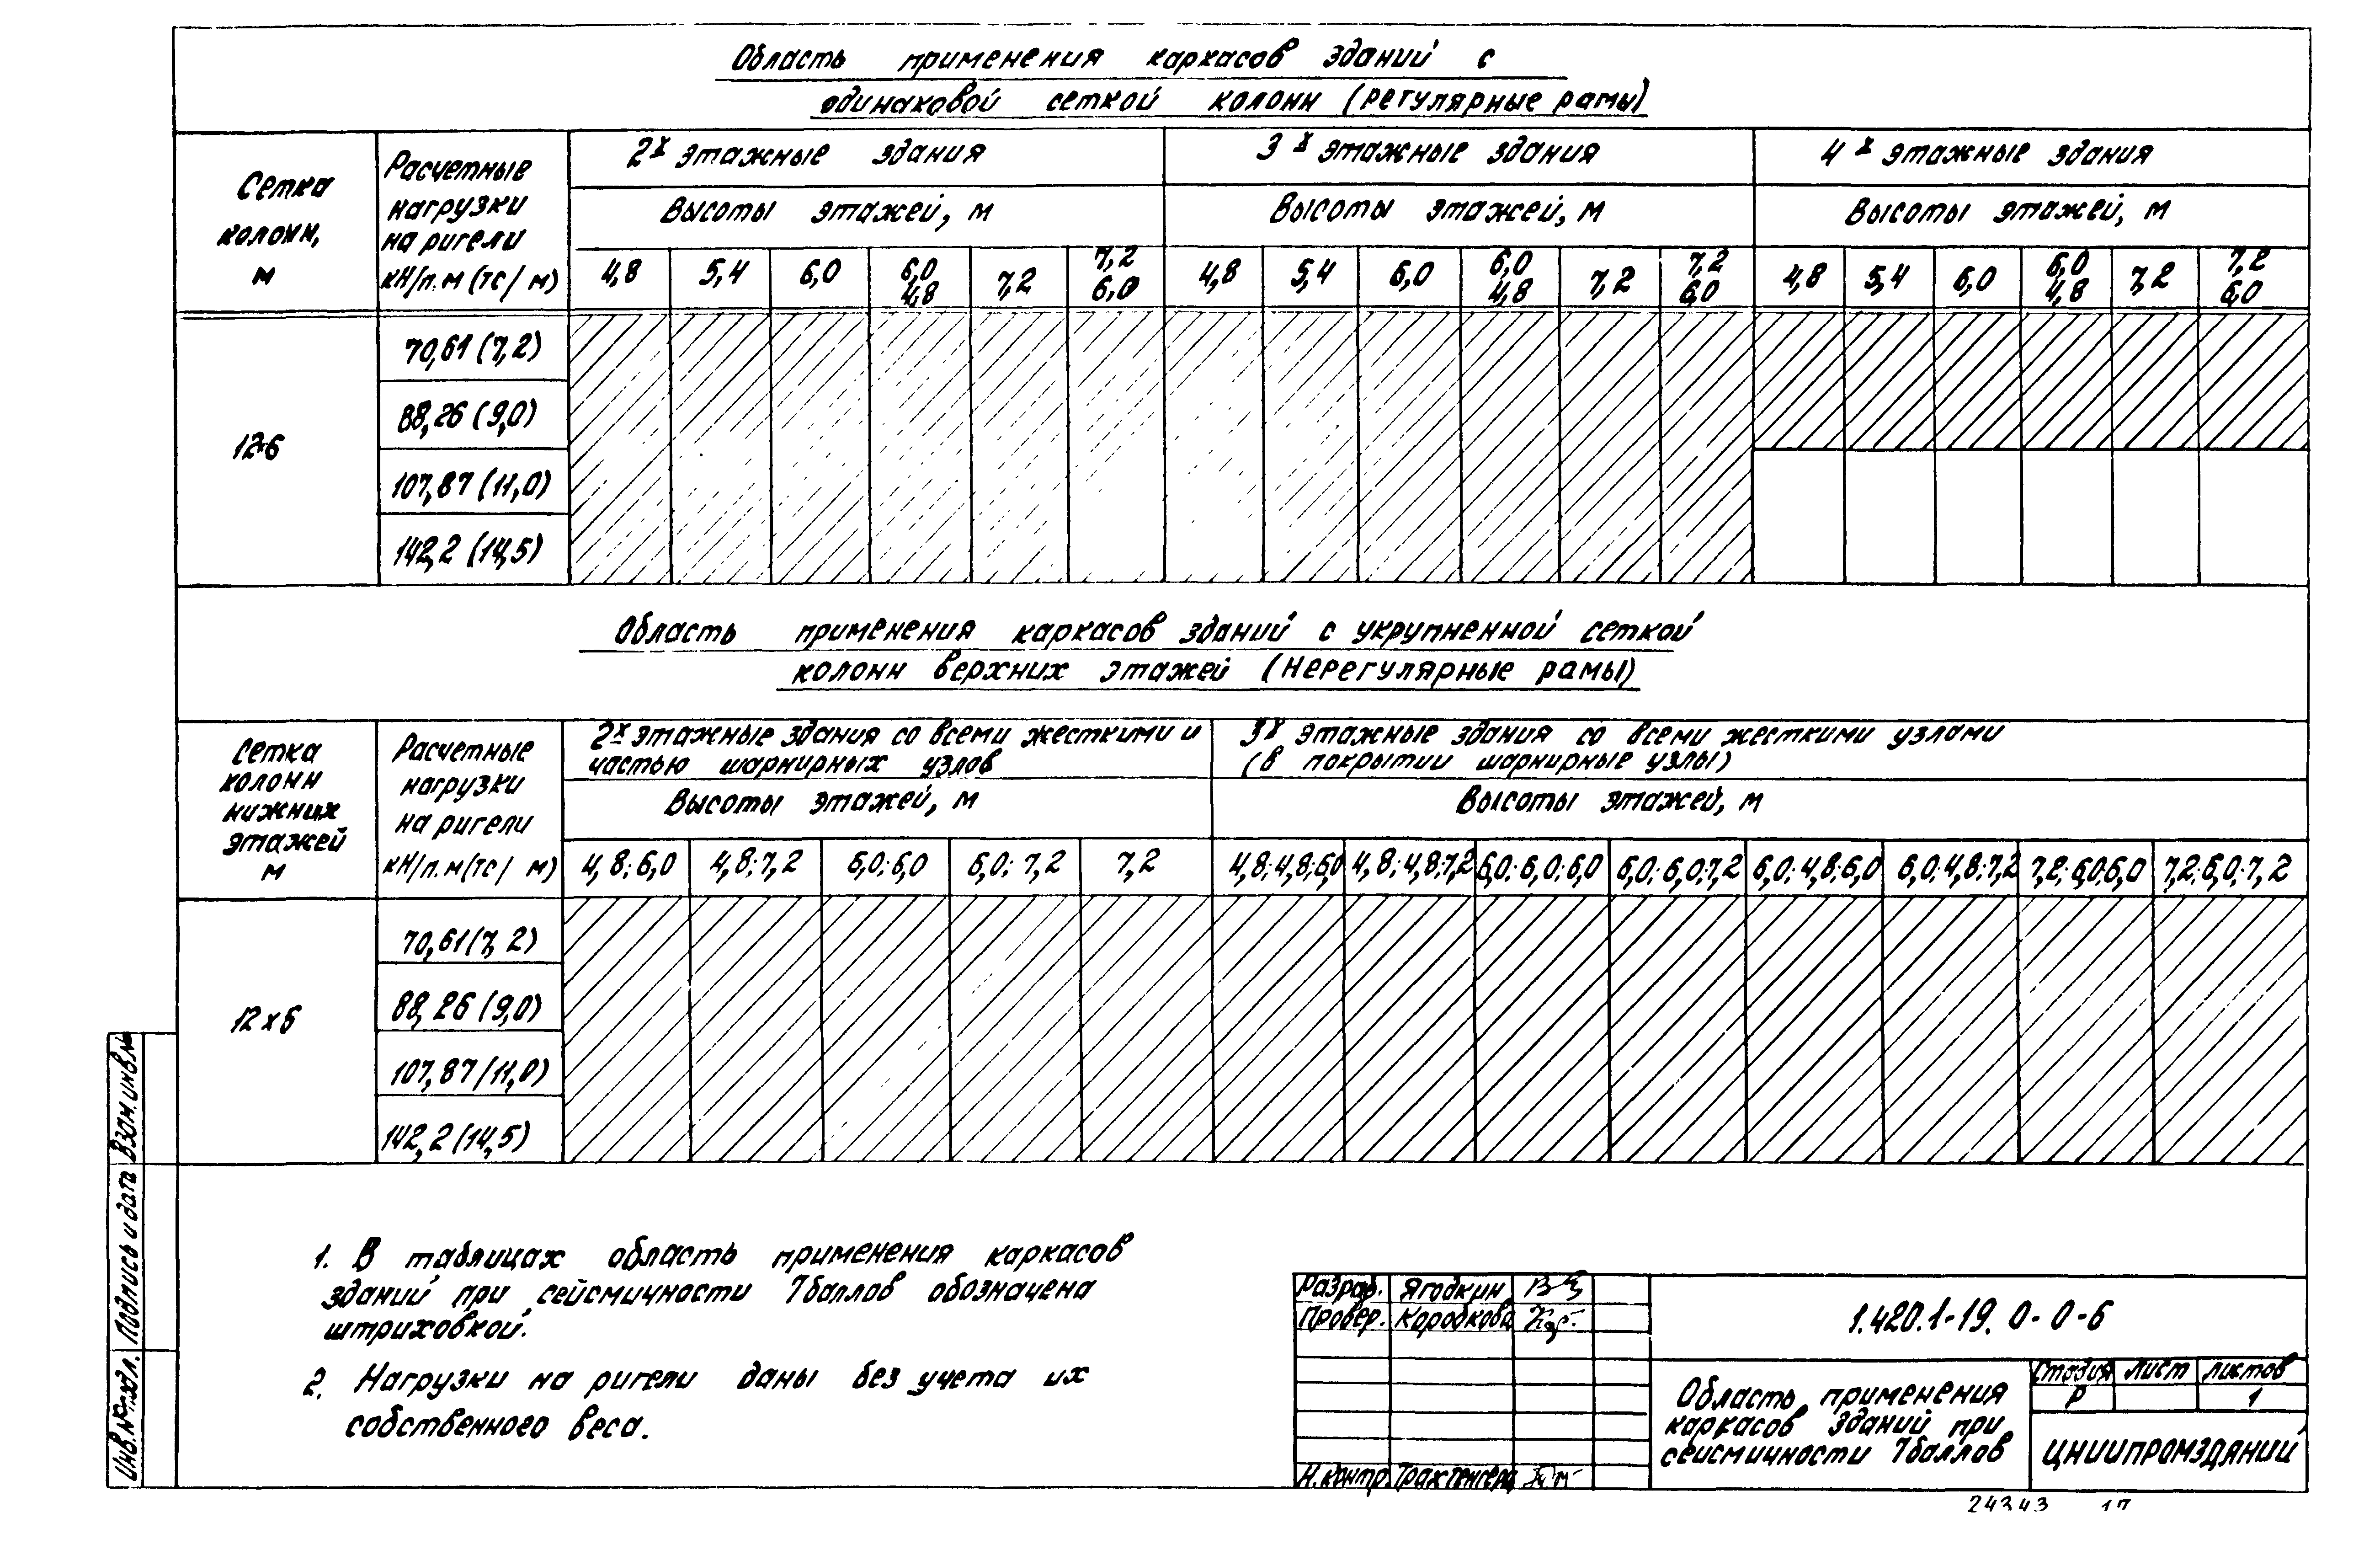 Область применения каркасов зданий с
одинаковой сеткой колонн (регулярные рамы)
Сетка
колонн,
м
Расчетные
нагрузки
на ригели
кН/п.м (тс/ м)
2х этажные здания
3х этажные здания
4х этажные здания
Высоты этажей, м
Высоты этажей, м
Высоты этажей, м
4,8 5,4 6,0 6,0 4,8 7,2 7,2 6,0
4,8 5,4 6,0 6,0 4,8 7,2 7,2 6,0
4,8 5,4 6,0 6,0 4,8 7,2 7,2 6,0
12х6
70,61 (7,2)
88,26 (9,0)
107,87 (11,0)
142,2 (14,5)
Область применения каркасов зданий с укрупненной сеткой
колонн верхних этажей (нерегулярные рамы)
Сетка
колонн
нижних
этажей
м
Расчетные
нагрузки
на ригели
кН/п.м (тс/ м)
2х этажные здания со всеми жесткими и
частью шарнирных узлов
3х этажные здания со всеми жесткими узлами
(в покрытии шарнирные узлы)
Высоты этажей, м
Высоты этажей, м
4,8; 6,0 4,8; 7,2 6,0; 6,0 6,0; 7,2 7,2
4,8; 4,8; 6,0 4,8; 4,8; 7,2 6,0; 6,0; 6,0 6,0; 6,0; 7,2 6,0; 4,8; 6,0 6,0; 4,8; 7,2 7,2; 6,0; 6,0 7,2; 6,0; 7,2
12 х 6
70,61 (7,2)
88,26 (9,0)
107,87 (11,0)
142,2 (14,5)
1. В таблицах область применения каркасов
зданий при сейсмичности 7баллов обозначена
штриховкой.
2. Нагрузки на ригели даны без учета их
собственного веса.
Разраб. Ягодкин
Провер. Коробкова
Н.контр. Трахтенгерц
1.420.1-19. 0-0-6
Область применения
каркасов зданий при
сейсмичности 7баллов
Стадия Лист Листов
Р 1
ЦНИИПРОМЗДАНИЙ
Инв.№подл. Подпись и дата Взам.инв.№
24343 17